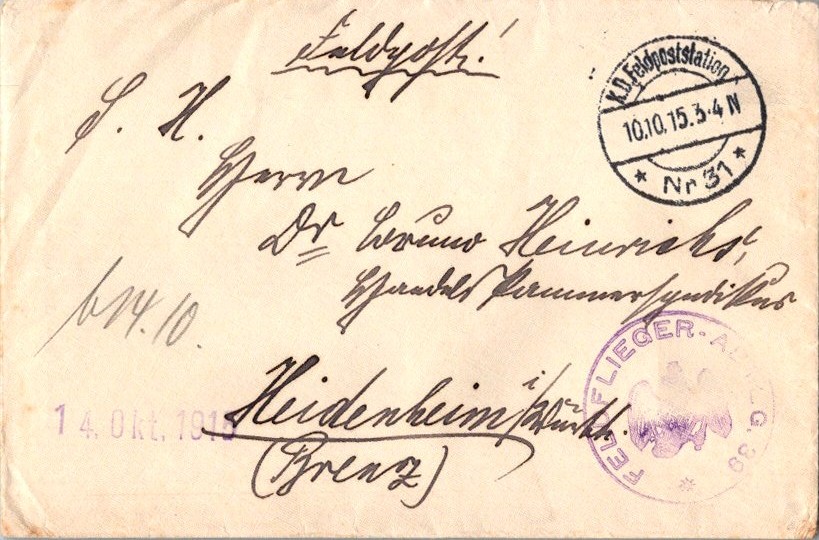 Feldpost!
K.D. Feldpoststation
10.10.15.3-4 N
* Nr 31 *
S. H.
Herrn
Dr Bruno Heinrichs,
Handelskammersyndikus
b 14.10.
FELDFLIEGER-ABTLG. 39
14. Okt. 1915
Heidenheim i/Württb.
(Brenz)